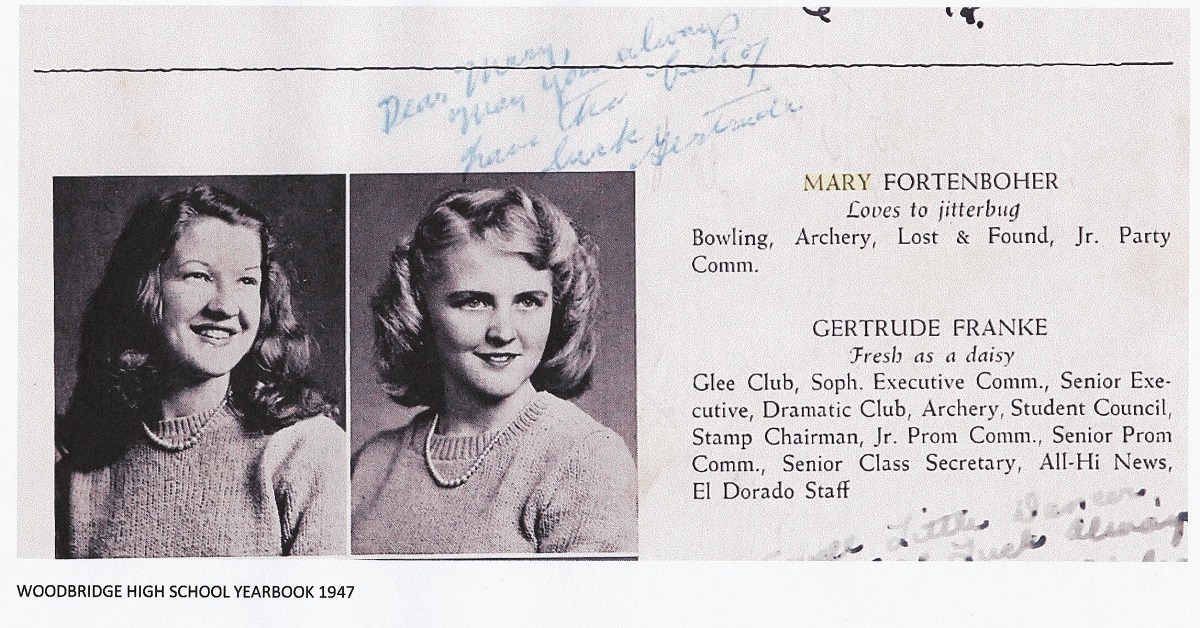 Dear Mary,
May you always
have the best of
luck
Gertrude.
MARY FORTENBOHER
Loves to jitterbug
Bowling, Archery, Lost & Found, Jr. Party
Comm.
GERTRUDE FRANKE
Fresh as a daisy
Glee Club, Soph. Executive Comm., Senior Exe-
cutive, Dramatic Club, Archery, Student Council,
Stamp Chairman, Jr. Prom Comm., Senior Prom
Comm., Senior Class Secretary, All-Hi News,
El Dorado Staff
Little Dancer,
Luck always
WOODBRIDGE HIGH SCHOOL YEARBOOK 1947